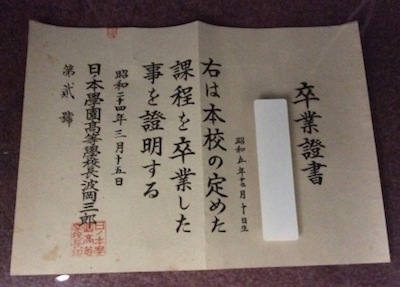 卒業證書
昭和五年月十日生
右は本校の定めた
課程を卒業した
事を證明する
昭和二十四年三月十五日
日本學園高等學校長波岡三郎
第貳號